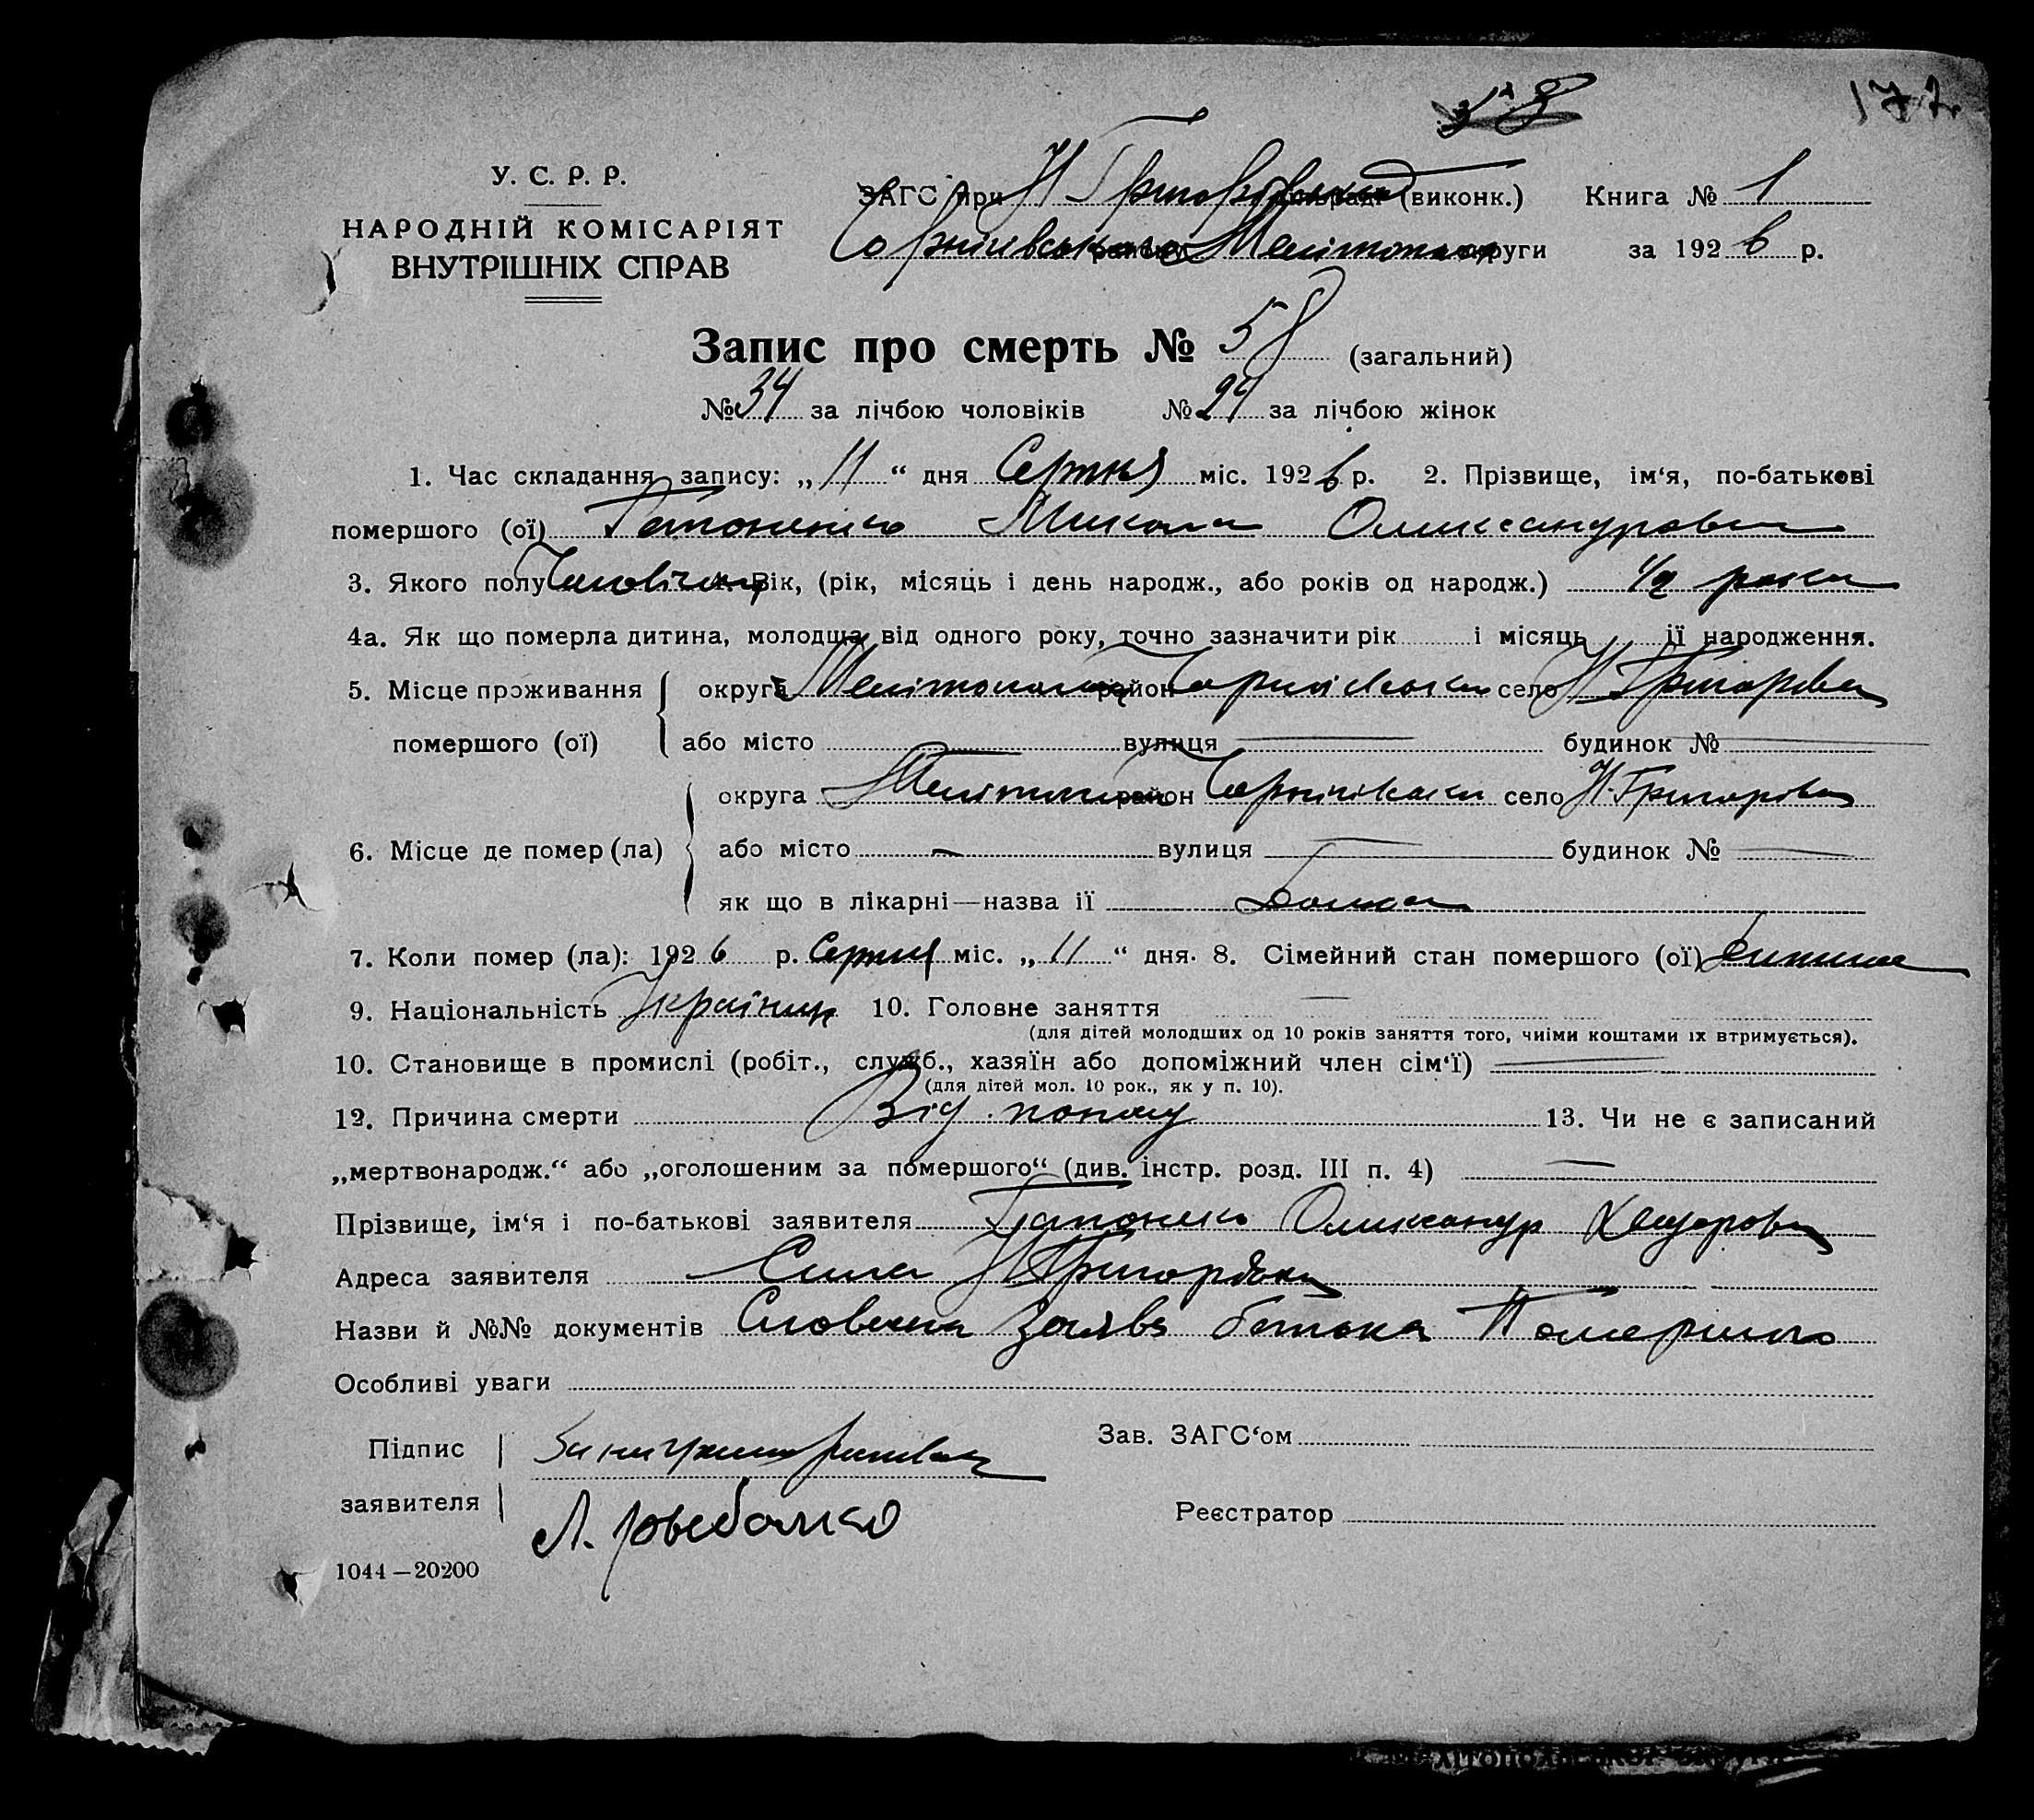 177
У. С. Р. Р.
НАРОДНІЙ КОМІСАРІЯТ
ВНУТРІШНІХ СПРАВ
ЗАГС при Н Григорівській (виконк.) Книга № 1
Мелітопол округи за 1926 р.
Запис про смерть № 58 (загальний)
№ 34 за лічбою чоловіків № 24 за лічбою жінок
1. Час складання запису: „11“ дня Серпня міс. 1926 р. 2. Прізвище, ім‘я, по-батькові
помершого (ої) Микола Олександрович
3. Якого полу Чоловічий 4. Вік, (рік, місяць і день народж., або років од народж.) 1/2 роки
4а. Як що померла дитина, молодща від одного року, точно зазначити рік і місяць її народження.
5. Місце проживання округа район село Н Григорівка
помершого (ої) або місто вулиця будинок №
округа район село Н. Григорівка
6. Місце де помер (ла) або місто вулиця будинок №
як що в лікарні—назва ії Дома
7. Коли помер (ла): 1926 р. Серпня міс. „11“ дня. 8. Сімейний стан помершого (ої) Дитина
9. Національність Українец 10. Головне заняття
(для дітей молодших од 10 років заняття того, чиіми коштами іх втримується).
10. Становище в промислі (робіт., служб., хазяїн або допоміжний член сім‘ї)
(для дітей мол. 10 рок., як у п. 10).
12. Причина смерти Від поносу 13. Чи не є записаний
„мертвонародж.“ або „оголошеним за помершого“ (див. інстр. розд. III п. 4)
Прізвище, ім‘я і по-батькові заявителя Олександр
Адреса заявителя Село Н Григорівка
Назви й №№ документів Словесна Заява батька Помершого
Особливі уваги
Підпис Зав. ЗАГС‘ом
заявителя Реєстратор
1044—20200